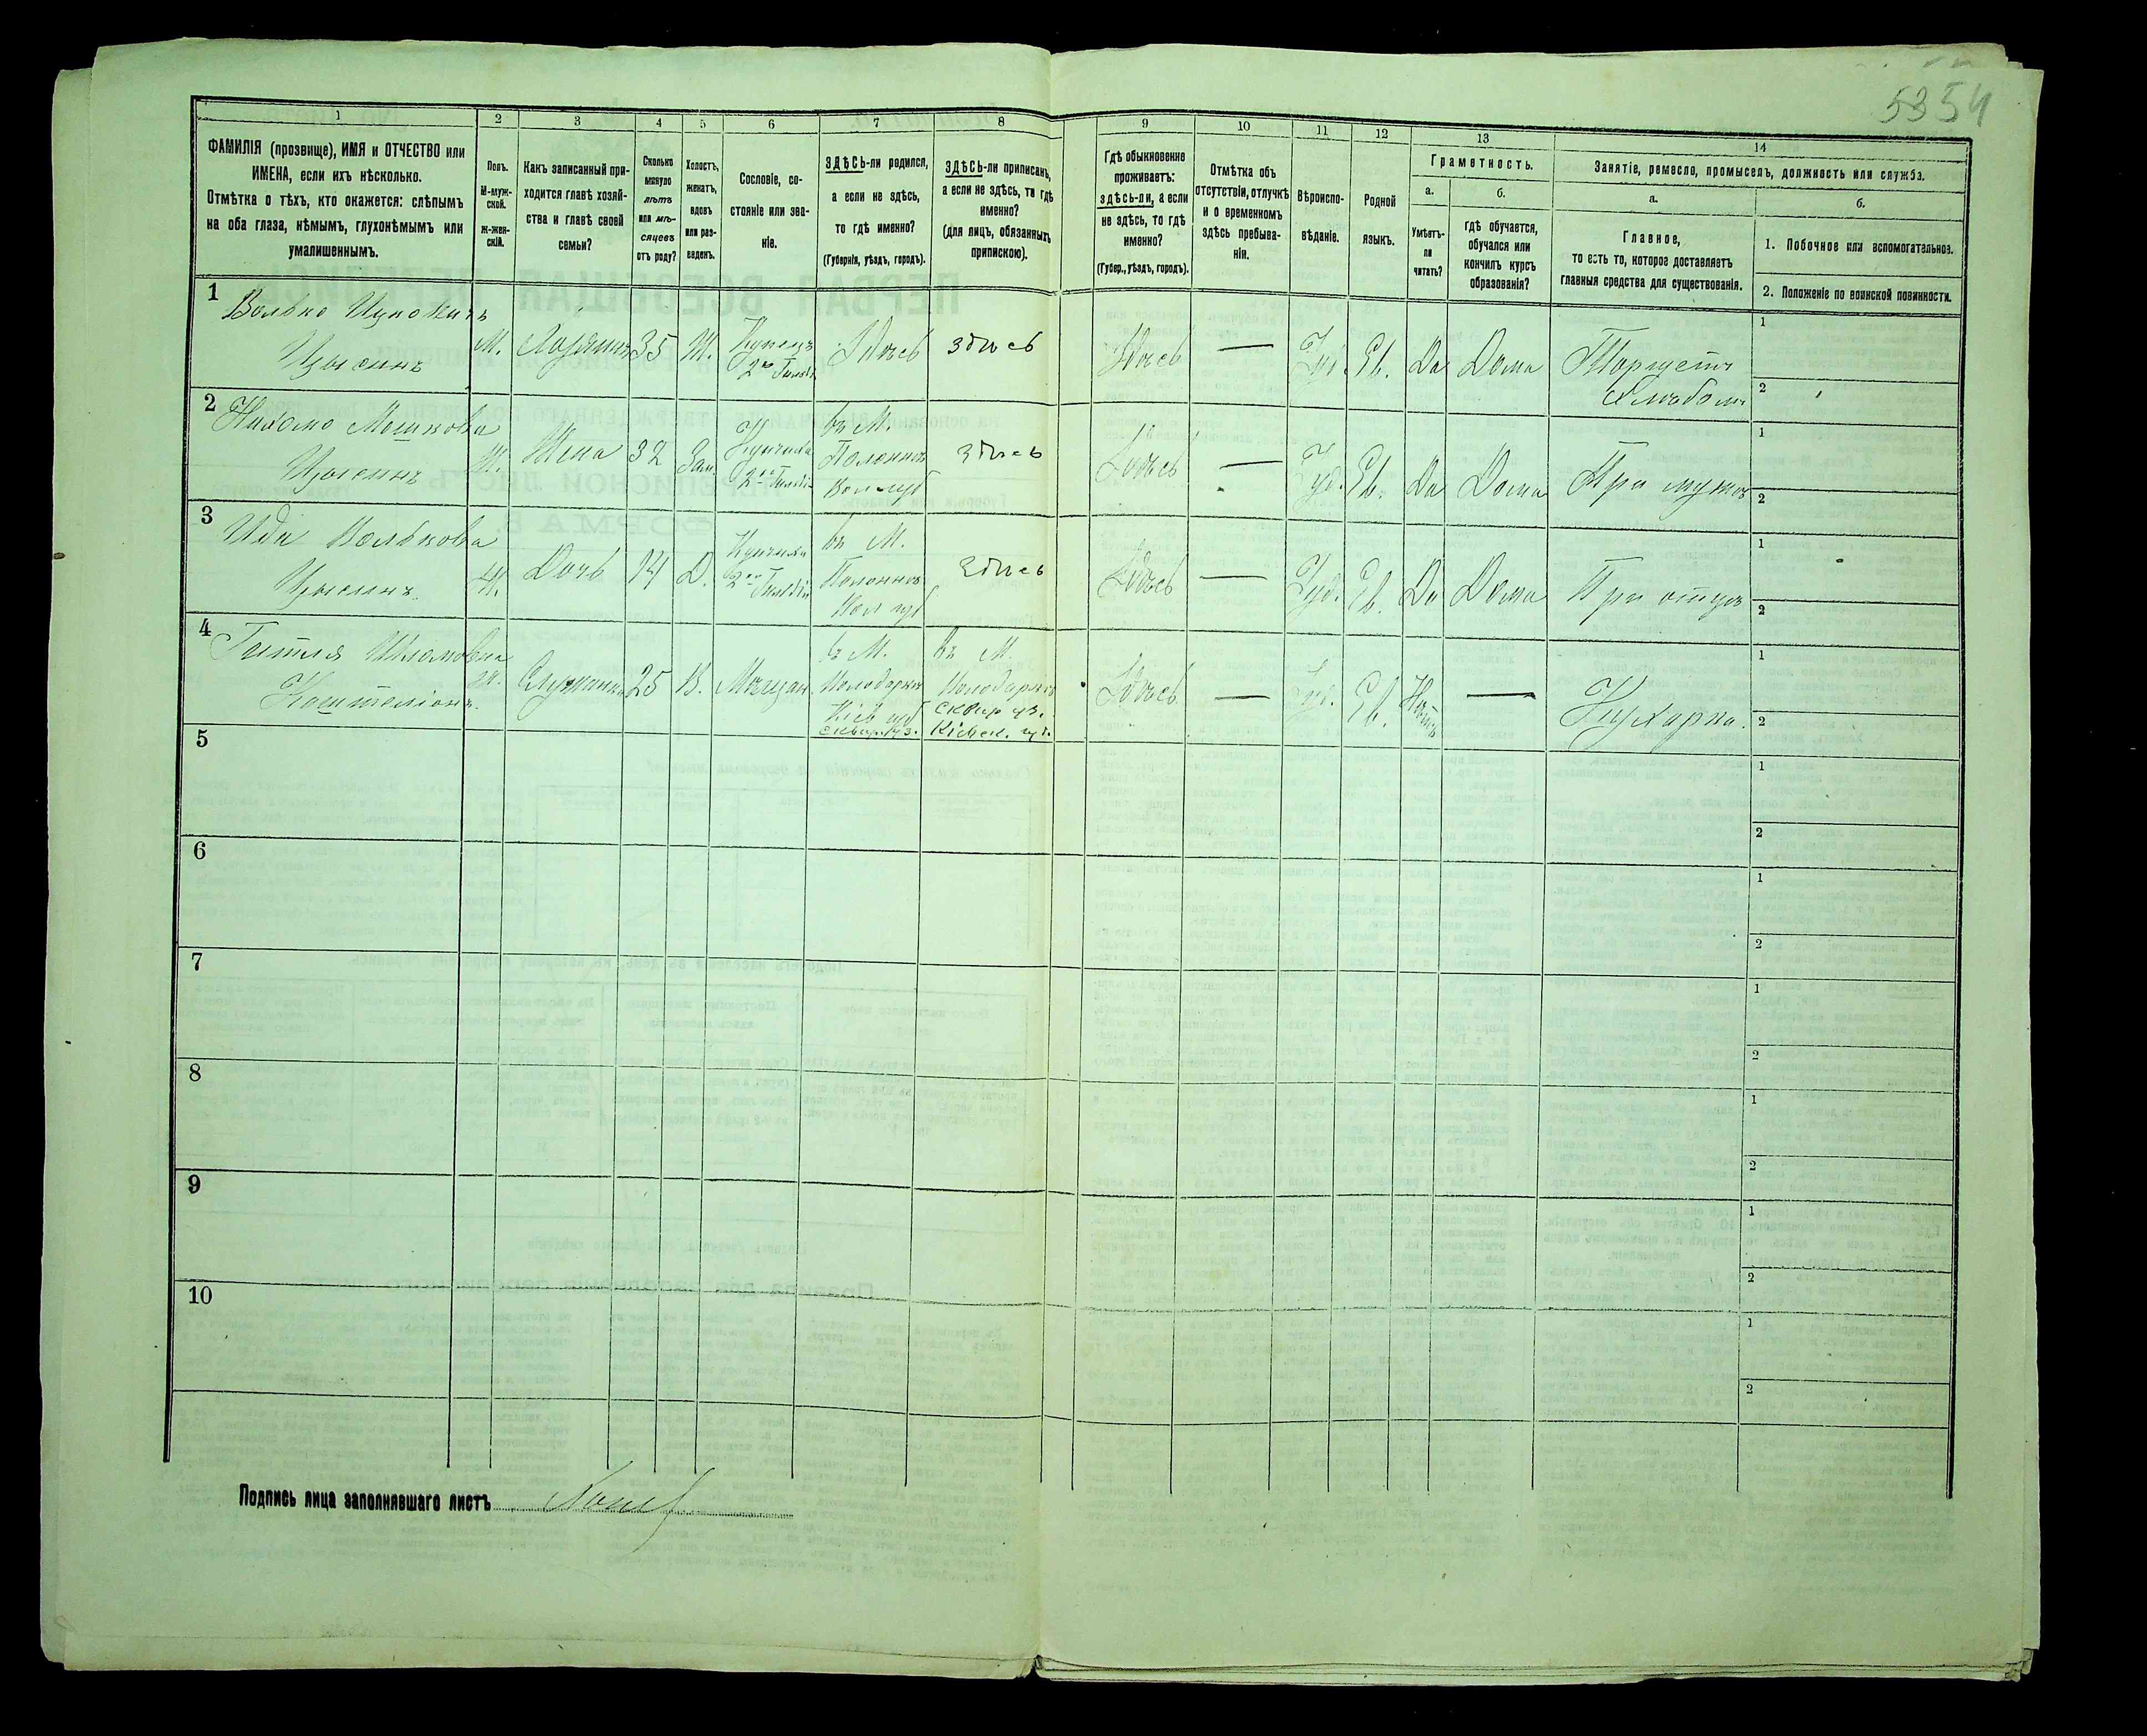 5354
1
2
3
4
5
6
7
8
9
10
11
12
13
14
ФАМИЛІЯ (прозвище), ИМЯ и ОТЧЕСТВО или
ИМЕНА, если ихъ нѣсколько.
Отмѣтка о тѣхъ, кто окажется: слѣпымъ
на оба глаза, нѣмымъ, глухонѣмымъ или
умалишеннымъ.
Полъ.
М-муж-
ской.
Ж-жен-
скій.
Какъ записанный при-
ходится главѣ хозяй-
ства и главѣ своей
семьи?
Сколько
минуло
лѣтъ
или мѣ-
сяцевъ
отъ роду?
Холостъ,
женатъ,
вдовъ
или раз-
веденъ.
Сословіе, со-
стояніе или зва-
ніе.
ЗДѢСЬ-ли родился,
а если не здѣсь,
то гдѣ именно?
(Губернія, уѣздъ, городъ).
ЗДѢСЬ-ли приписанъ,
а если не здѣсь, то гдѣ
именно?
(для лицъ, обязанныхъ
припискою).
Гдѣ обыкновенно
проживаетъ:
здѣсь-ли, а если
не здѣсь, то гдѣ
именно?
(Губер., уѣздъ, городъ).
Отмѣтка объ
отсутствіи, отлучкѣ
и о временномъ
здѣсь пребыва-
ніи.
Вѣроиспо-
вѣданіе.
Родной
языкъ.
Грамотность.
а.
Умѣетъ-
ли
читать?
б.
гдѣ обучается,
обучался или
кончилъ курсъ
образованія?
Занятіе, ремесло, промыселъ, должность или служба.
а.
Главное,
то есть то, которое доставляетъ
главныя средства для существованія.
б.
1. Побочное или вспомогательное.
2. Положеніе по воинской повинности.
1
Волько
М. Хозяинъ 35 Ж. Купецъ 2й Гильд. Здѣсь здѣсь Здѣсь — Іуд. Ев. Да Дома Торгуетъ
хлѣбомъ
1
2
2
Мошкова
Ж. Жена 32 Зам. Купчиха 2й Гильдіи
въ М.
Полонномъ
Вол губ
здѣсь Здѣсь — Іуд. Ев. Да Дома При мужѣ
1
2
3
Ида Волькова
Ж. Дочь 14 Д. Купчиха 2й Гильдіи
въ М.
Полонномъ
Вол губ
здѣсь Здѣсь — Іуд. Ев. Да Дома При отцѣ
1
2
4
Гитля Шломовна
Ж. 25 В. Мѣщан.
въ М.
Володаркѣ
Кіев губ
сквир. уз.
въ М.
Володаркѣ
сквир уз.
Кіевск. гу.
Здѣсь — Іуд. Ев. — Кухарка.
1
2
5
1
2
6
1
2
7
1
2
8
1
2
9
1
2
10
1
2
Подпись лица заполнявшаго листъ